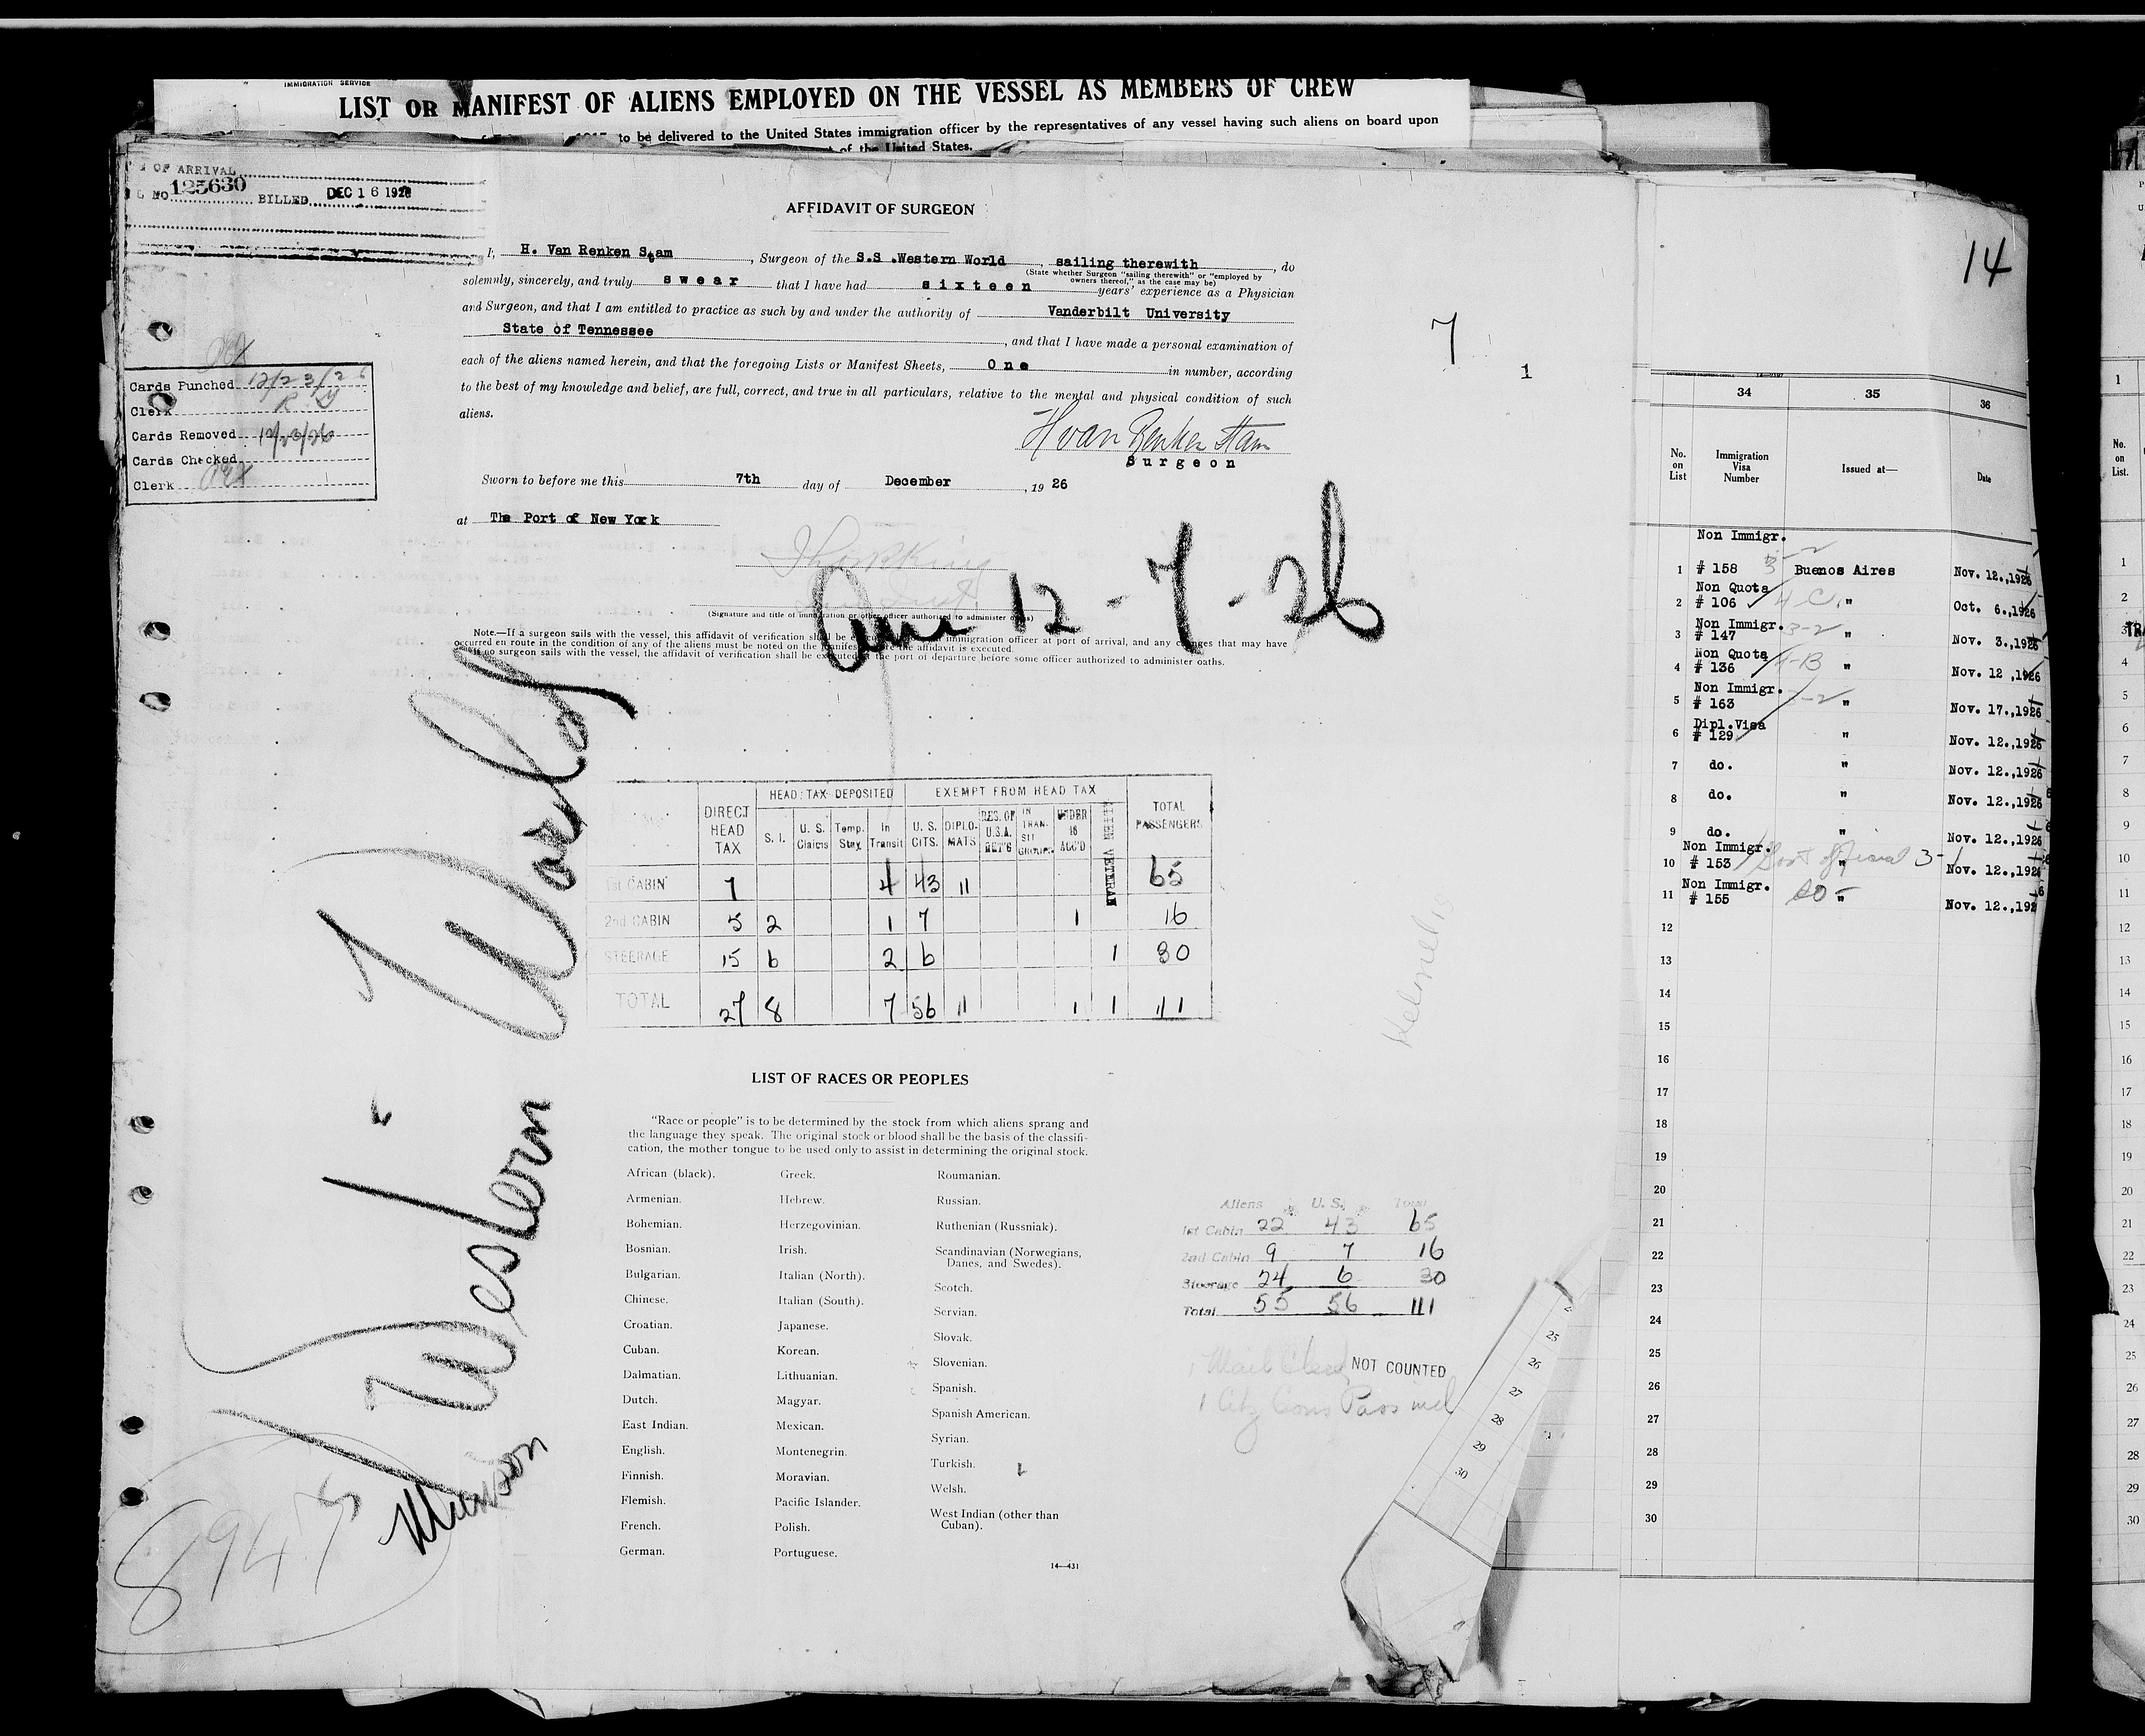 IMMIGRATION SERVICE
LIST OR MANIFEST OF ALIENS EMPLOYED ON THE VESSEL AS MEMBERS OF CREW
to be delivered to the United States immigration officer by the representatives of any vessel having such aliens on board upon
of the United States.
OF ARRIVAL
NO 125630 BILLED DEC 16 192
AFFIDAVIT OF SURGEON
I, H. Van Renken Stam, Surgeon of the S.S .Western World, sailing therewith, do
(State whether Surgeon "sailing therewith" or "employed by
owners thereof," as the case may be)
solemnly, sincerely, and truly swear that I have had sixteen years' experience as a Physician
and Surgeon, and that I am entitled to practice as such by and under the authority of Vanderbilt University
State of Tennessee, and that I have made a personal examination of
each of the aliens named herein, and that the foregoing Lists or Manifest Sheets, One in number, according
to the best of my knowledge and belief, are full, correct, and true in all particulars, relative to the mental and physical condition of such
aliens.
H van Renken Stam
Surgeon
Sworn to before me this 7th day of December, 19 26
at The Port of New York
(Signature and title of immigration or other officer authorized to administer oaths)
Note.—If a surgeon sails with the vessel, this affidavit of verification shall be immigration officer at port of arrival, and any changes that may have
occurred en route in the condition of any of the aliens must be noted on the manifest the affidavit is executed.
If no surgeon sails with the vessel, the affidavit of verification shall be executed at the port of departure before some officer authorized to administer oaths.
Cards Punched 12/23/26
Clerk
Cards Removed 12/23/26
Cards Checked
Clerk
7
1
12-7-26
Western World
Munson
8947
DIRECT HEAD TAX
HEAD TAX DEPOSITED
EXEMPT FROM HEAD TAX
TOTAL PASSENGERS
S. I. U. S. Claims Temp. Stay In Transit U. S. CITS. DIPLO-MATS RES. OF U.S.A. RET'G IN TRAN-SIT GROUPS UNDER 16 ACC'D ALIEN VETERAN
1st CABIN 7 4 43 11 65
2nd CABIN 5 2 1 7 1 16
STEERAGE 15 6 2 6 1 30
TOTAL 27 8 7 56 11 1 1 111
LIST OF RACES OR PEOPLES
"Race or people" is to be determined by the stock from which aliens sprang and
the language they speak. The original stock or blood shall be the basis of the classifi-
cation, the mother tongue to be used only to assist in determining the original stock.
African (black).
Armenian.
Bohemian.
Bosnian.
Bulgarian.
Chinese.
Croatian.
Cuban.
Dalmatian.
Dutch.
East Indian.
English.
Finnish.
Flemish.
French.
German.
Greek.
Hebrew.
Herzegovinian.
Irish.
Italian (North).
Italian (South).
Japanese.
Korean.
Lithuanian.
Magyar.
Mexican.
Montenegrin.
Moravian.
Pacific Islander.
Polish.
Portuguese.
Roumanian.
Russian.
Ruthenian (Russniak).
Scandinavian (Norwegians,
Danes, and Swedes).
Scotch.
Servian.
Slovak.
Slovenian.
Spanish.
Spanish American.
Syrian.
Turkish.
Welsh.
West Indian (other than
Cuban).
14—431
Aliens U. S. Total
1st Cabin 22 43 65
2nd Cabin 9 7 16
Steerage 24 6 30
Total 55 56 111
NOT COUNTED
25
26
27
28
29
30
14
34 35 36
No. on List
Immigration Visa Number
Issued at—
Date
Non Immigr.
1 # 158 3-2 Buenos Aires Nov. 12.,1926
Non Quota
2 # 106 4-C. " Oct. 6.,1926
Non Immigr.
3 # 147 3-2 " Nov. 3.,1926
Non Quota
4 # 136 4-B " Nov. 12 ,1926
Non Immigr.
5 # 163 3-2 " Nov. 17.,1926
Dipl.Visa
6 # 129 " Nov. 12.,1926
7 do. " Nov. 12.,1926
8 do. " Nov. 12.,1926
9 do. " Nov. 12.,1926
Non Immigr.
10 # 153 Govt official 3-1 " Nov. 12.,192
Non Immigr.
11 # 155 do - " Nov. 12.,192
12
13
14
15
16
17
18
19
20
21
22
23
24
25
26
27
28
29
30
1
No. on List.
1
2
3
4
5
6
7
8
9
10
11
12
13
14
15
16
17
18
19
20
21
22
23
24
25
26
27
28
29
30